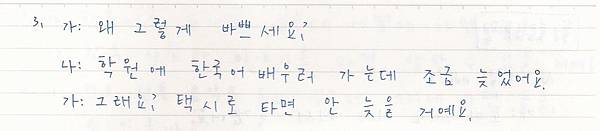 3. 가: 왜 그렇게 바쁘세요?
나: 학원에 한국어 배우러 가는데 조금 늦었어요.
가: 그래요? 택시로 타면 안 늦을 거예요.